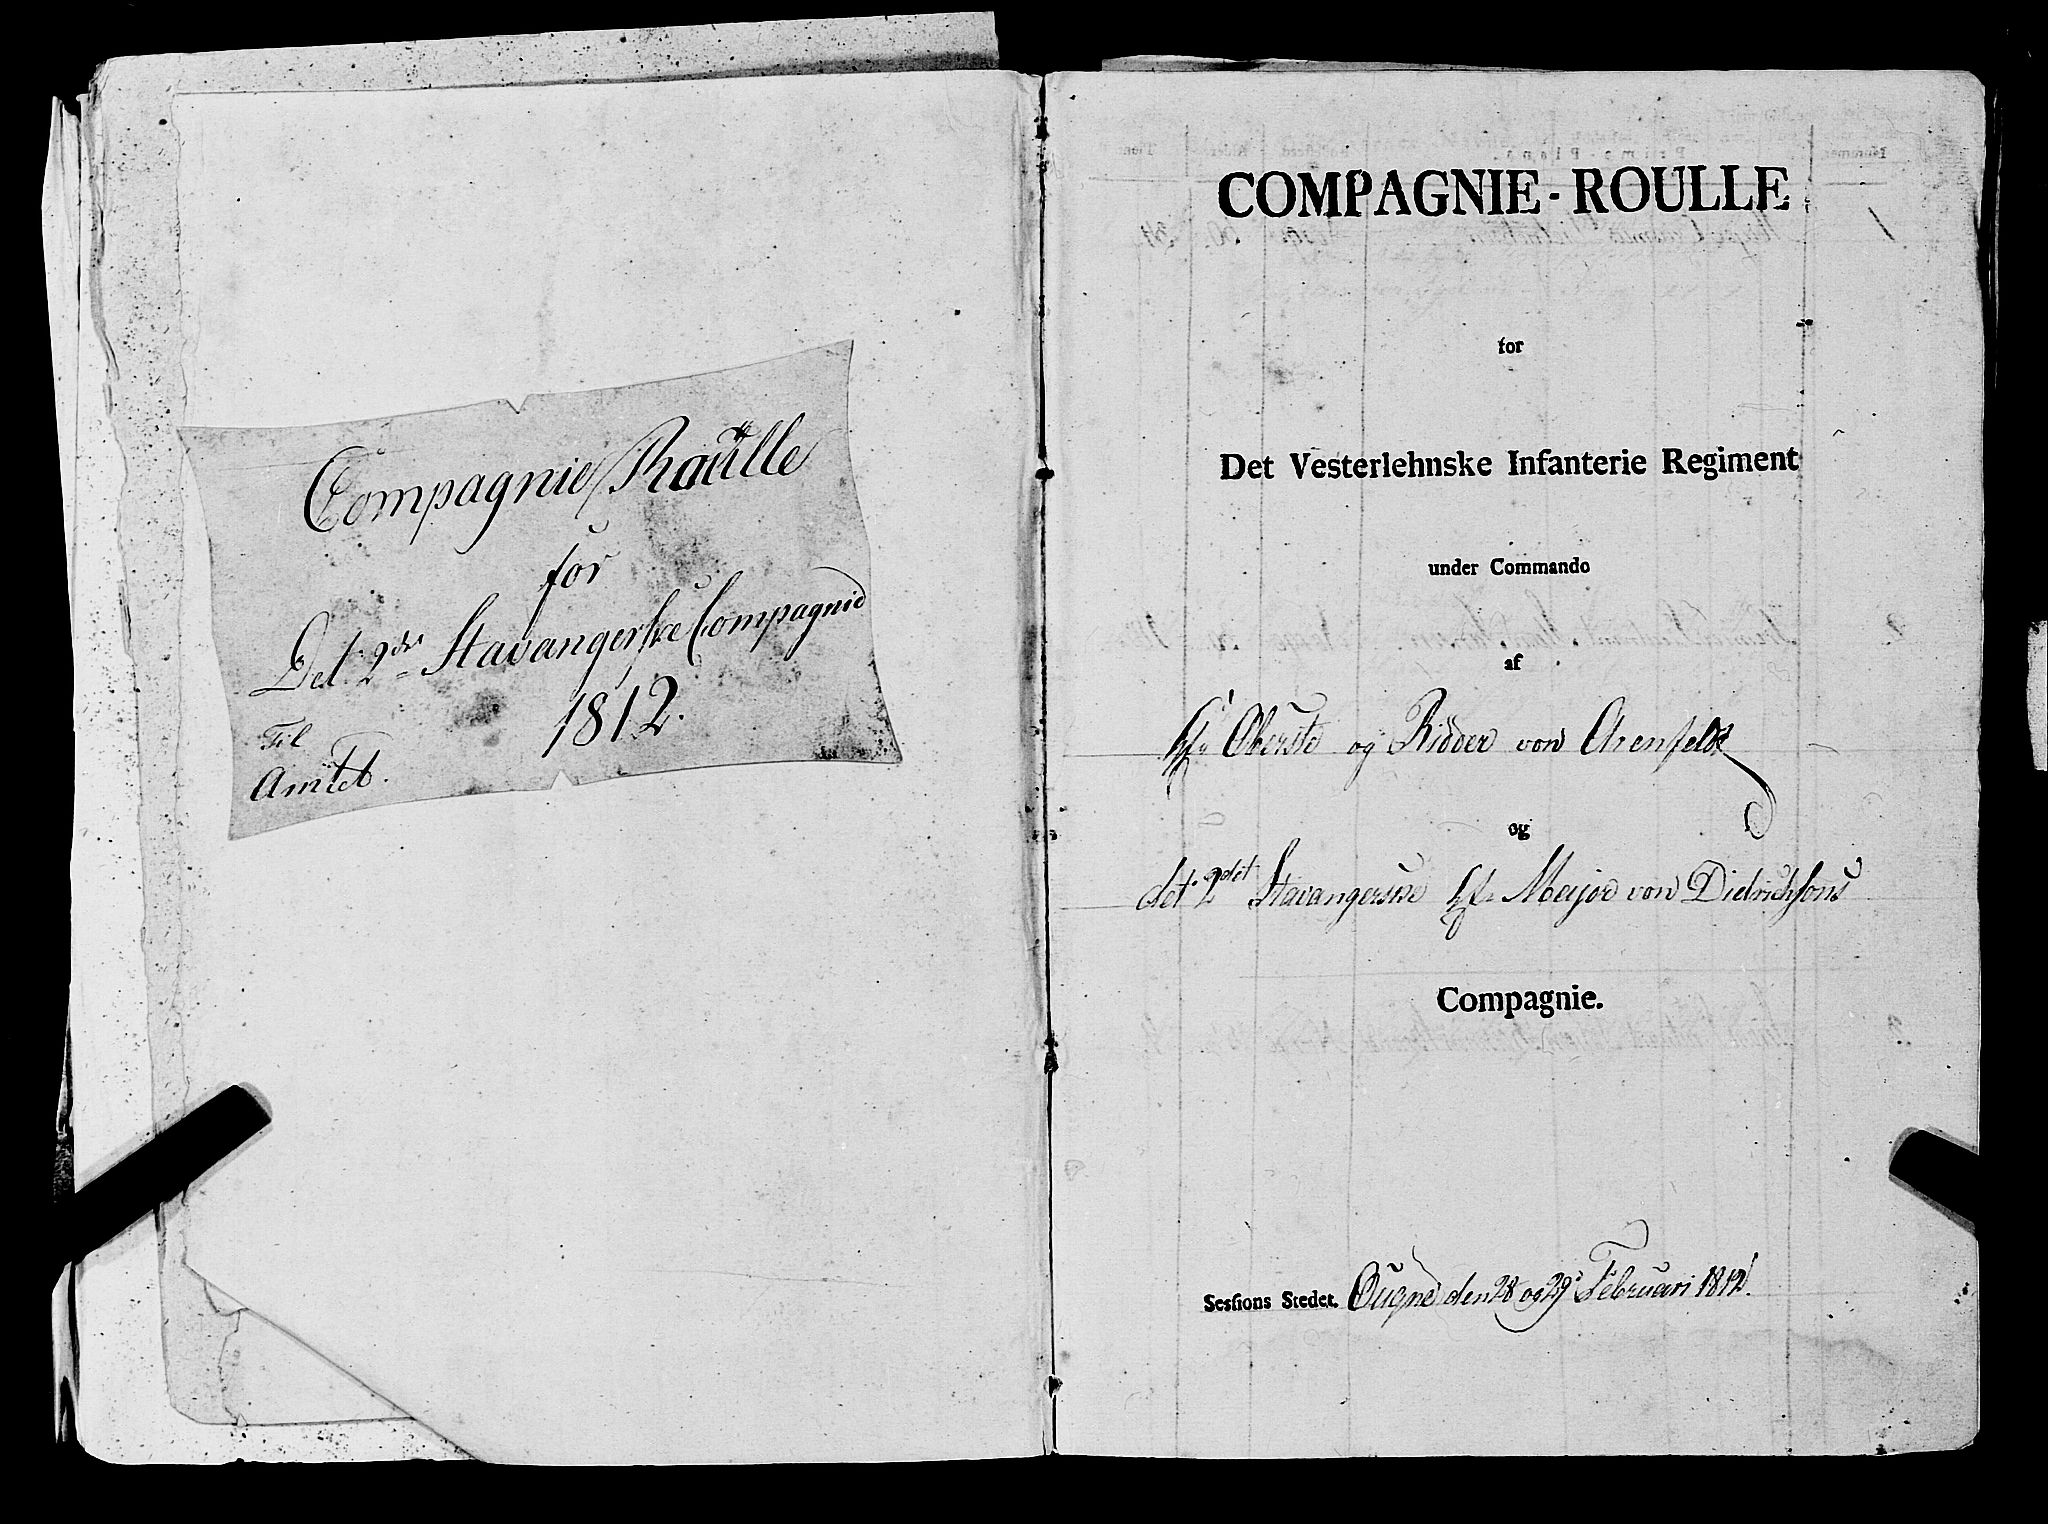 Compagnie Roulle
for
Det 2de Stavangerske Compagnie
1812.
Til
Amtet.
COMPAGNIE-ROULLE
for
Det Vesterlehnske Infanterie Regiment
under Commando
af
Hr Oberste og Ridder von Arenfeldt
og
det 2det Stavangerske Hr Major von Didrichsons
Compagnie.
Sessions Stedet. Ougne den 28 og 29 Februari 1812.